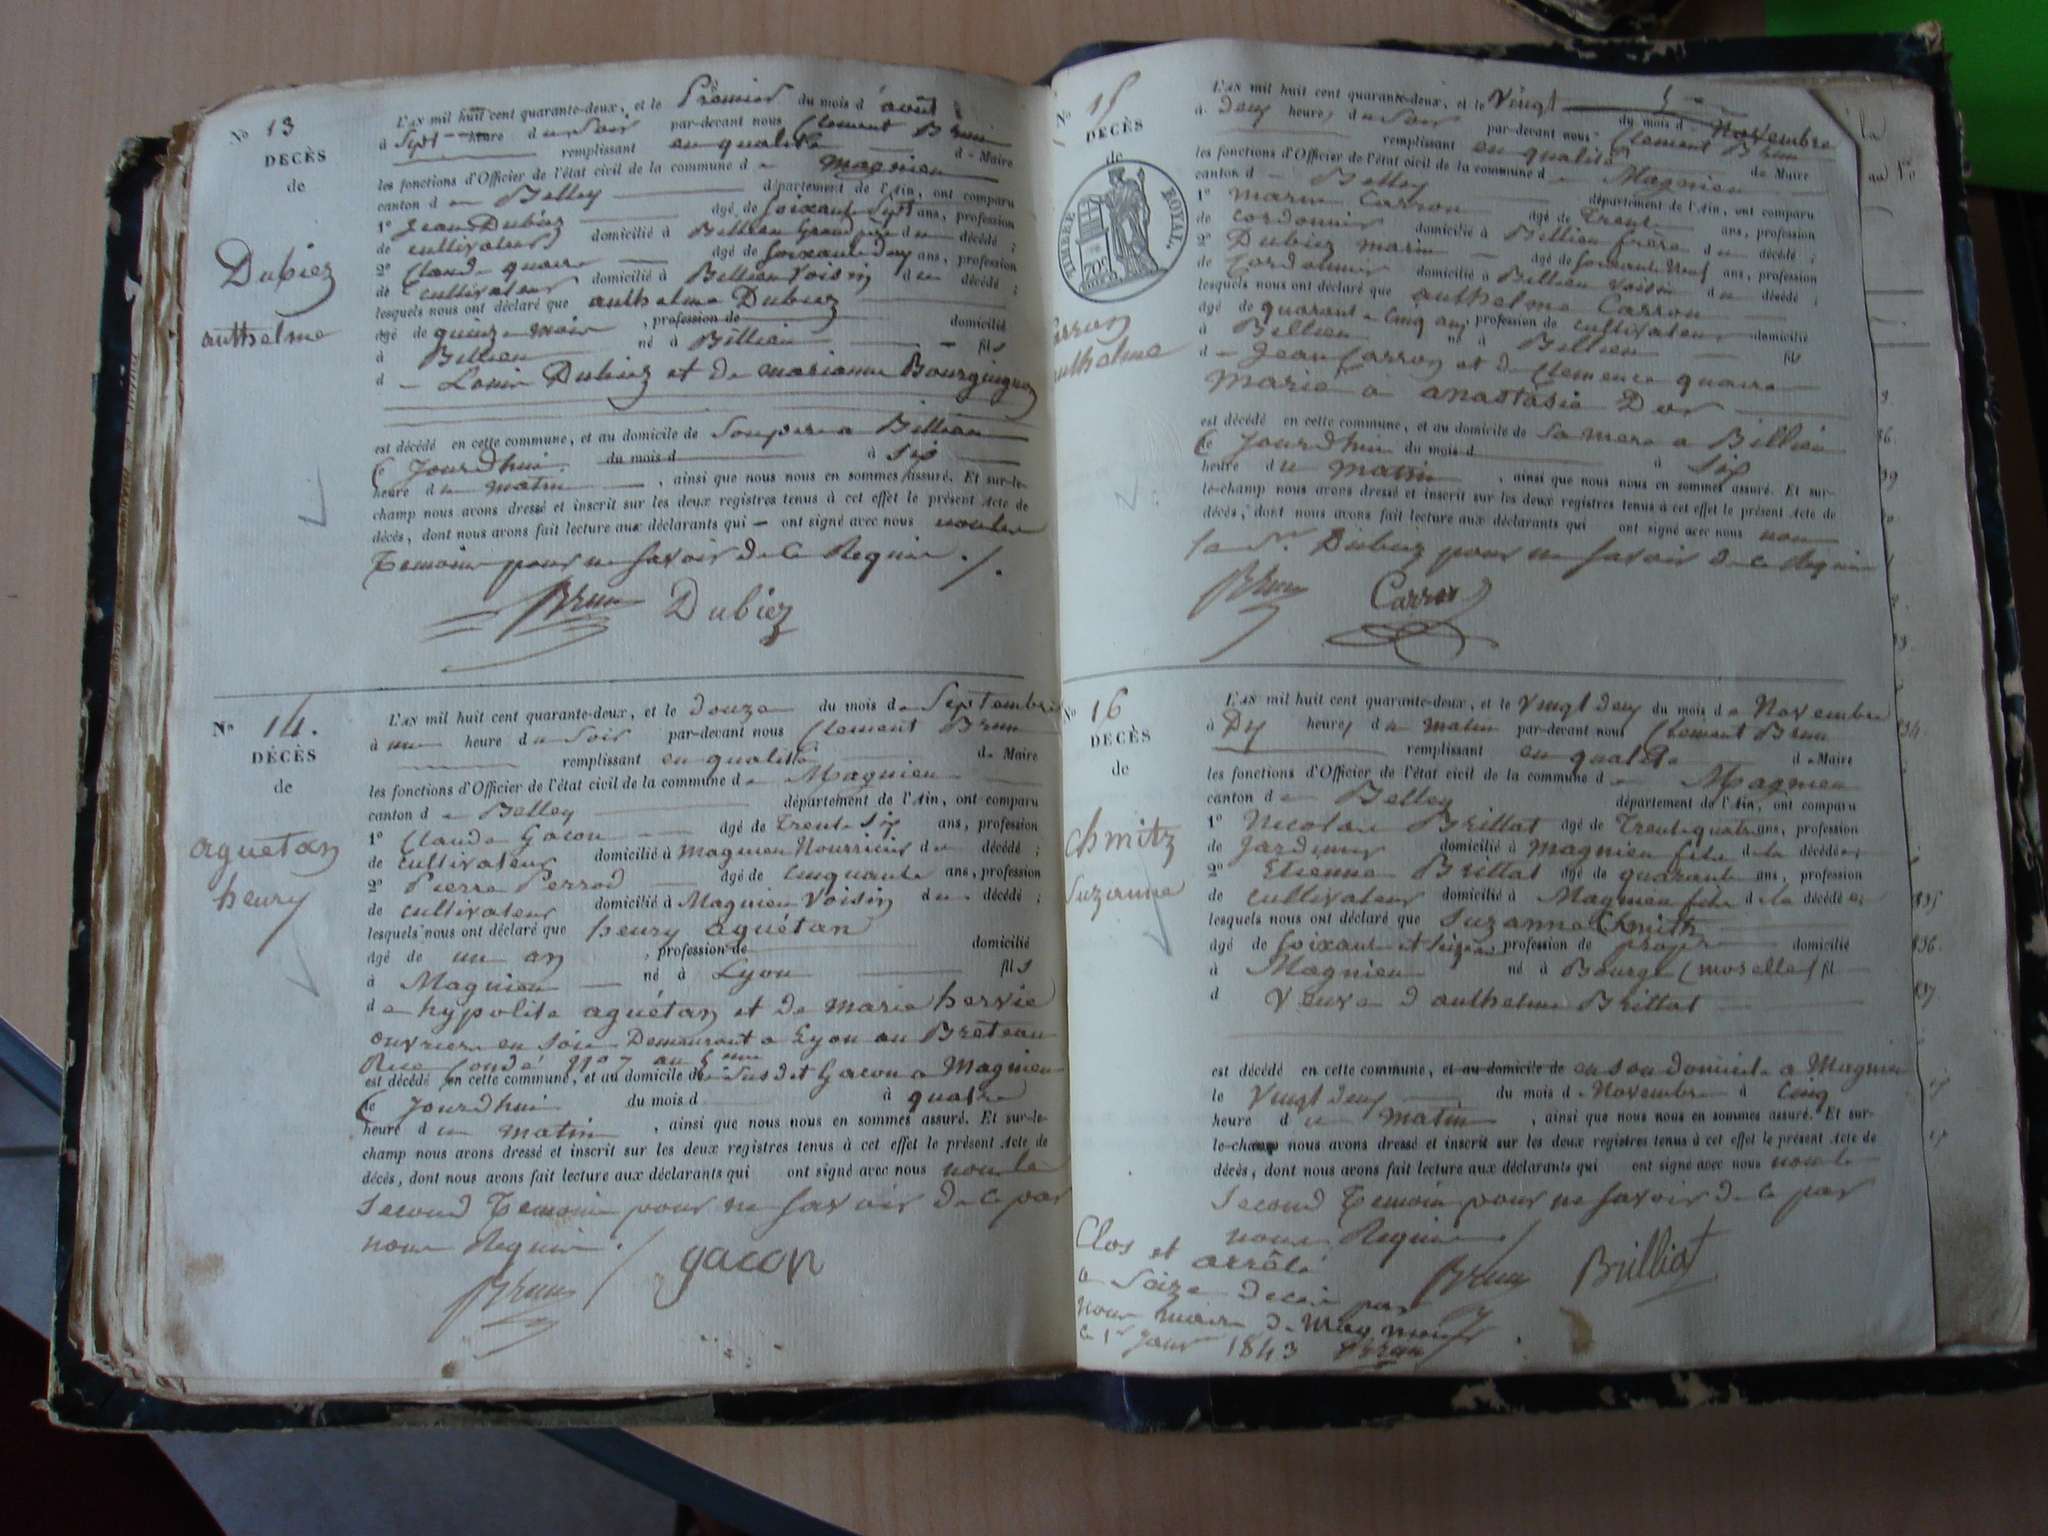 No 13
DECÈS
de
Dubiez
anthelme
L'AN mil huit cent quarante-deux, et le Premier du mois d'août
à Sept heure du Soir par-devant nous Clement Brun
remplissant en qualité de Maire
les fonctions d'Officier de l'état civil de la commune de Magnieu
canton de Belley département de l'Ain, ont comparu
1° Jean Dubiez âgé de Soixante Sept ans, profession
de cultivateur domicilié à Billieu Grand père du décédé ;
2° Claude quaire âgé de Soixante deux ans, profession
de cultivateur domicilié à Billieu Voisin du décédé ;
lesquels nous ont déclaré que anthelme Dubiez
âgé de quinze mois , profession de domicilié
à Billieu né à Billieu fils
d Louis Dubiez et de marianne Bourguignon
est décédé en cette commune, et au domicile de Son pere a Billieu
Ce Jourdhui du mois d à Six
heure du matin , ainsi que nous nous en sommes assuré. Et sur-le-
champ nous avons dressé et inscrit sur les deux registres tenus à cet effet le présent Acte de
décès, dont nous avons fait lecture aux déclarants qui ont signé avec nous non le
Temoin pour ne Savoir de ce Requis ./.
Brun Dubiez
No 14.
DÉCÈS
de
aguétan
henry
L'AN mil huit cent quarante-deux, et le douze du mois de Septembre
à une heure du Soir par-devant nous Clement Brun
remplissant en qualité de Maire
les fonctions d'Officier de l'état civil de la commune de Magnieu
canton de Belley département de l'Ain, ont comparu
1° Claude Gacon âgé de Trente Six ans, profession
de cultivateur domicilié à Magnieu Nourricier du décédé ;
2° Pierre Perrod âgé de Cinquante ans, profession
de cultivateur domicilié à Magnieu Voisin du décédé ;
lesquels nous ont déclaré que henry aguétan
âgé de un an , profession de domicilié
à Magnieu né à Lyon fils
de hypolite aguétan et de marie hervie
ouvriers en Soie Demeurant a Lyon au Bréteau
Rue Condé No 7 au 5eme
est décédé en cette commune, et au domicile de Susdit Gacon a Magnieu
Ce Jourdhui du mois d à quatre
heure du matin , ainsi que nous nous en sommes assuré. Et sur-le-
champ nous avons dressé et inscrit sur les deux registres tenus à cet effet le présent Acte de
décès, dont nous avons fait lecture aux déclarants qui ont signé avec nous non le
Second Temoin pour ne Savoir de ce par
nous Requis ./
Brun gacon
No 15
DÉCÈS
de
TIMBRE ROYAL.
70c
Carron
anthelme
L'AN mil huit cent quarante-deux, et le Vingt du mois de Novembre
à deux heures du Soir par-devant nous Clement Brun
remplissant en qualité de Maire
les fonctions d'Officier de l'état civil de la commune de Magnieu
canton de Belley département de l'Ain, ont comparu
1° Marin Carron âgé de Trente ans, profession
de cordonnier domicilié à Billieu frère du décédé ;
2° Dubiez Marin âgé de Soixante Neuf ans, profession
de Cordonnier domicilié à Billieu Voisin du décédé ;
lesquels nous ont déclaré que anthelme Carron
âgé de quarante Cinq ans profession de cultivateur domicilié
à Billieu né à Billieu fils
de Jean Carron et de Clemence quaire
Marié a anastasie Dor
est décédé en cette commune, et au domicile de Sa mere a Billieu
Ce Jourdhui du mois d à Six
heure du Matin , ainsi que nous nous en sommes assuré. Et sur-
le-champ nous avons dressé et inscrit sur les deux registres tenus à cet effet le présent Acte de
décès, dont nous avons fait lecture aux déclarants qui ont signé avec nous non
le Sr. Dubiez pour ne Savoir de ce Requis
Brun Carron
No 16
DECÈS
de
Chmitz
Suzanne
L'AN mil huit cent quarante-deux, et le Vingt deux du mois de Novembre
à Dix heures du matin par-devant nous Clement Brun
remplissant en qualité de Maire
les fonctions d'Officier de l'état civil de la commune de Magnieu
canton de Belley département de l'Ain, ont comparu
1° Nicolas Brillat âgé de Trente quatre ans, profession
de Jardinier domicilié à Magnieu fils de la décédée ;
2° Etienne Brillat âgé de quarante ans, profession
de cultivateur domicilié à Magnieu fils de la décédée ;
lesquels nous ont déclaré que Suzanne Chmith
âgé de Soixante et Seize profession de domicilié
à Magnieu né à Bourge (moselle) fil
d Veuve d'anthelme Brillat
est décédé en cette commune, et au domicile de en son domicile a Magnieu
le Vingt deux du mois de Novembre à Cinq
heure du matin , ainsi que nous nous en sommes assuré. Et sur-
le-champ nous avons dressé et inscrit sur les deux registres tenus à cet effet le présent Acte de
décès, dont nous avons fait lecture aux déclarants qui ont signé avec nous non le
Second Temoin pour ne Savoir de ce par
nous Requis ./
Brun Brilliat
Clos et arrêté
a Seize décès par
nous maire de Magnieu
le 1er Janv 1843 Brun